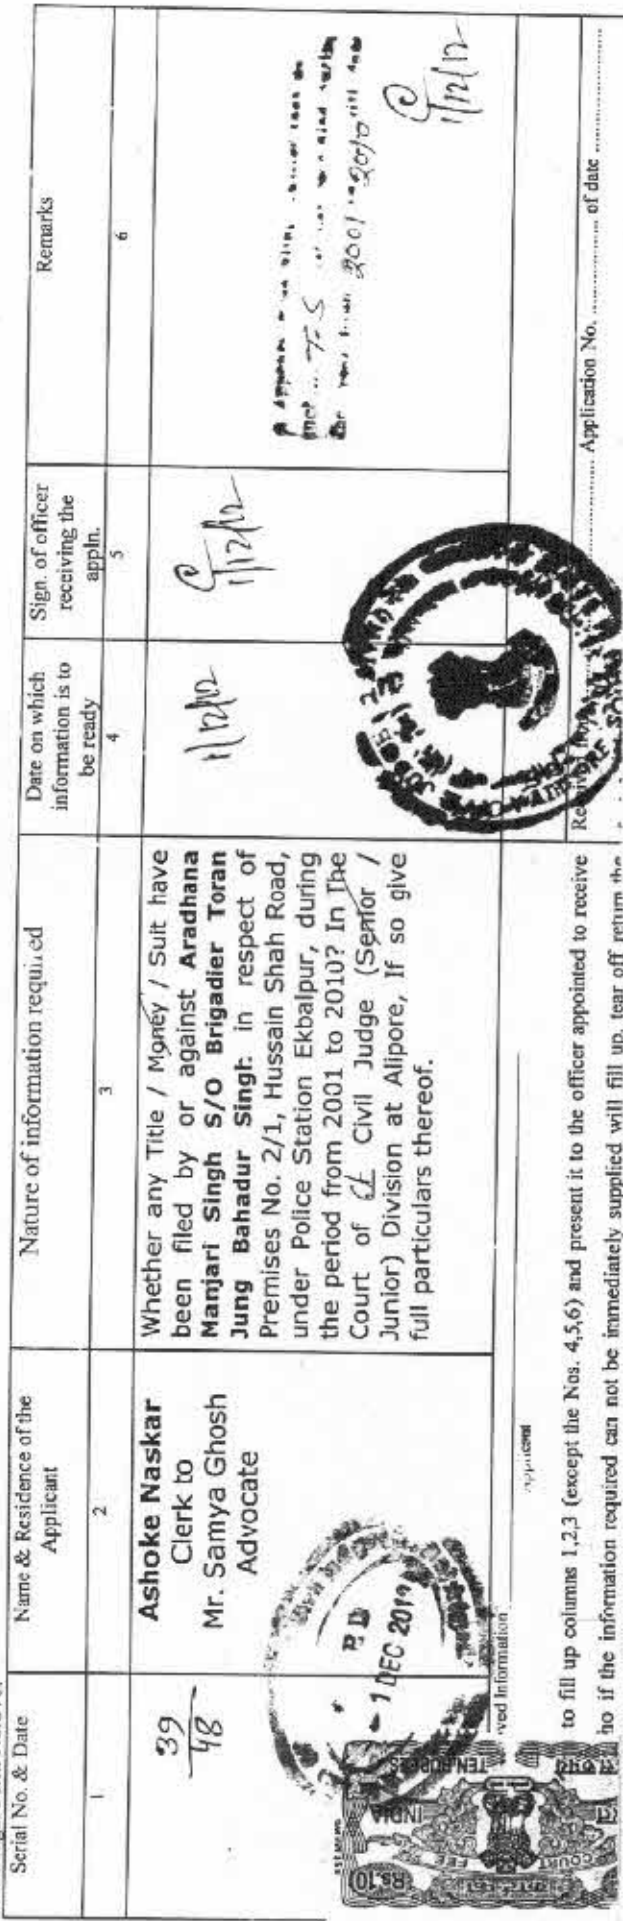 Serial No. & Date
Name & Residence of the
Applicant
Nature of information required
Date on which
information is to
be ready
Sign. of officer
receiving the
appln.
Remarks
1
2
3
4
5
6
39
48
Ashoke Naskar
Clerk to
Mr. Samya Ghosh
Advocate
Whether any Title / Money / Suit have
been filed by or against Aradhana
Manjari Singh S/O Brigadier Toran
Jung Bahadur Singh in respect of
Premises No. 2/1, Hussain Shah Road,
under Police Station Ekbalpur, during
the period from 2001 to 2010? In The
Court of Civil Judge (Senior /
Junior) Division at Alipore, If so give
full particulars thereof.
1/12/12
1/12/12
T.S
2001 2010
1/12/12
1 DEC 201
ved Information
Applicant
Application No. of date
to fill up columns 1,2,3 (except the Nos. 4,5,6) and present it to the officer appointed to receive
ho if the information required can not be immediately supplied will fill up, tear off return the
Rs.10
INDIA
COURT FEE
TEN RUPEES